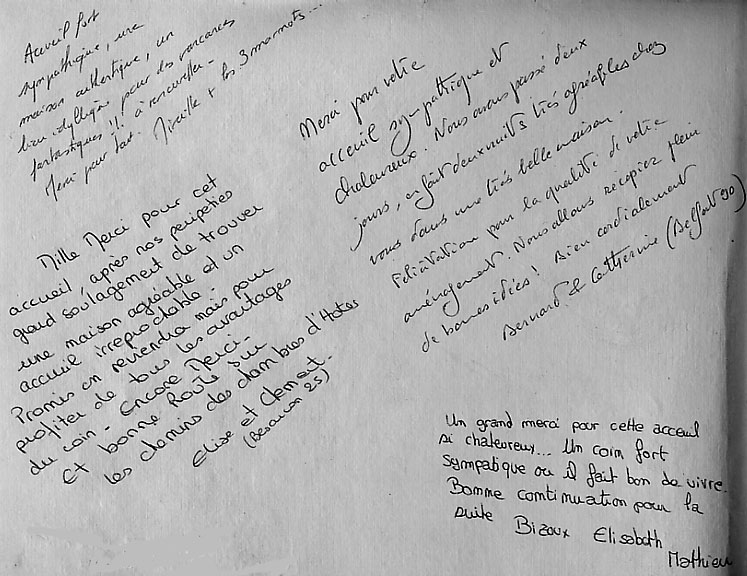 Accueil fort
sympathique, une
maison authentique, un
lieu idyllique pour des vacances
fantastiques !!!
Merci pour tout - à renouveller -
Mireille + les 3 marmots...
Merci pour votre
acceuil sympathique et
chaleureux. Nous avons passé deux
jours, en fait deux nuits très agréables chez
vous dans une très belle maison.
Félicitation pour la qualité de votre
aménagement. Nous allons récopier plein
de bonnes idées ! Bien cordialement
Bernard & Catherine (Belfort 90)
Mille Merci pour cet
accueil, après nos péripéties
grand soulagement de trouver
une maison agréable et un
accueil irreprochable.
Promis on reviendra mais pour
profiter de tous les avantages
du coin - Encore Merci -
Et bonne Route sur
les chemins des chambres d'Hotes
Elise et Clement.
(Besancon 25)
Un grand merci pour cette acceuil
si chaleureux... Un coin fort
sympatique ou il fait bon de vivre
Bonne continuation pour la
suite Bizoux Elisabeth
Mathieu